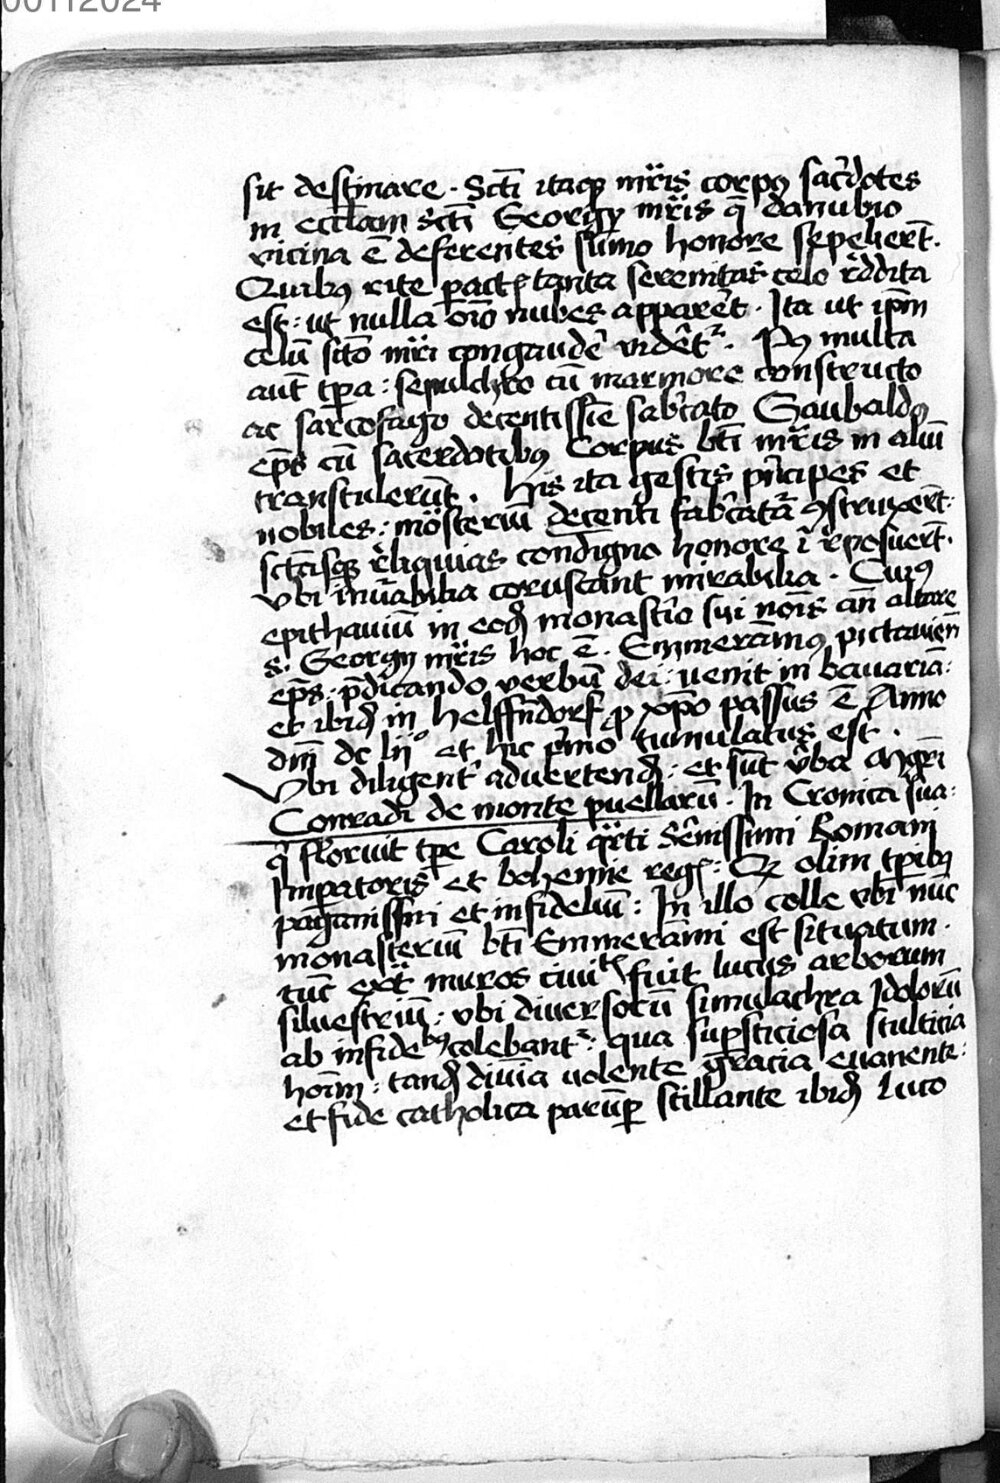 00112024
sit destinare . Scti itaqꝫ mr̃is corpꝯ sac̃dotes
in eccl̃iam scti Georgy mr̃is q̃ danubio
vicina ẽ deferentes sum̃o honore sepeliert̃ .
Quibꝯ rite p̱actꝭ tanta serenitas celo r̃ddita
est : ut nulla om̃o nubes apparer̃t . Ita ut ip̃m
celũ sc̃o mr̃i congaudẽ vidẽt᷑ . Pꝯ multa
aut̃ tp̃a : sepulchro cũ marmore constructo
ac sarcofago decentissĩe fabr̃cato Gaubaldꝯ
ep̃s cũ sacerdotibꝯ Corpus bt̃i mr̃is in aliũ
transtulerũt . His ita gestis pr̃icipes et
nobiles : mõsteriũ decenti fabr̃catũra ꝯstruxert̃ :
sctãsqꝫ r̃liquias condigno honore ĩ r̃posuert̃ .
vbi inũabilia coruscant mirabilia . Cuiꝯ
epithauiũ in eodꝫ monast̃io sui nom̃is an̄ altare
s . Georgij mr̃is hoc ẽ . Emmeram̃ꝯ pictauieñ
ep̃s . p̃dicando verbũ dei : uenit in bauariã :
et ibidꝫ in Helffndorf ꝓ xp̃o passus ẽ Anno
dñi dc lijº et hic p̃mo tumulatus est .
Vbi diligent̃ aduertendꝫ : et sũt v̾ba mgr̃i
Conradi de monte puellarũ . In Cronica sua :
q̃ floruit tp̃e Caroli qr̃ti Sẽnissimi Romanı
Imp̱atoris et bohemie regꝭ : Qꝫ olim tp̱ibꝯ
paganissmi et infideliũ : In illo colle vbi nũc
monasteriũ bt̃i Emmerãmi est situatum .
tũc ext̃ muros ciuitꝭ fuit lucus arborum
siluestriũ : vbi diuersorũ simulachra Idolorũ
ab infidebꝯ colebant᷑ : qua sup̱sticiosa stulticia
hoĩm : tandꝫ diuĩa uolente gracia euanente :
et fide catholica parũp̱ stillante ibidꝫ Luco